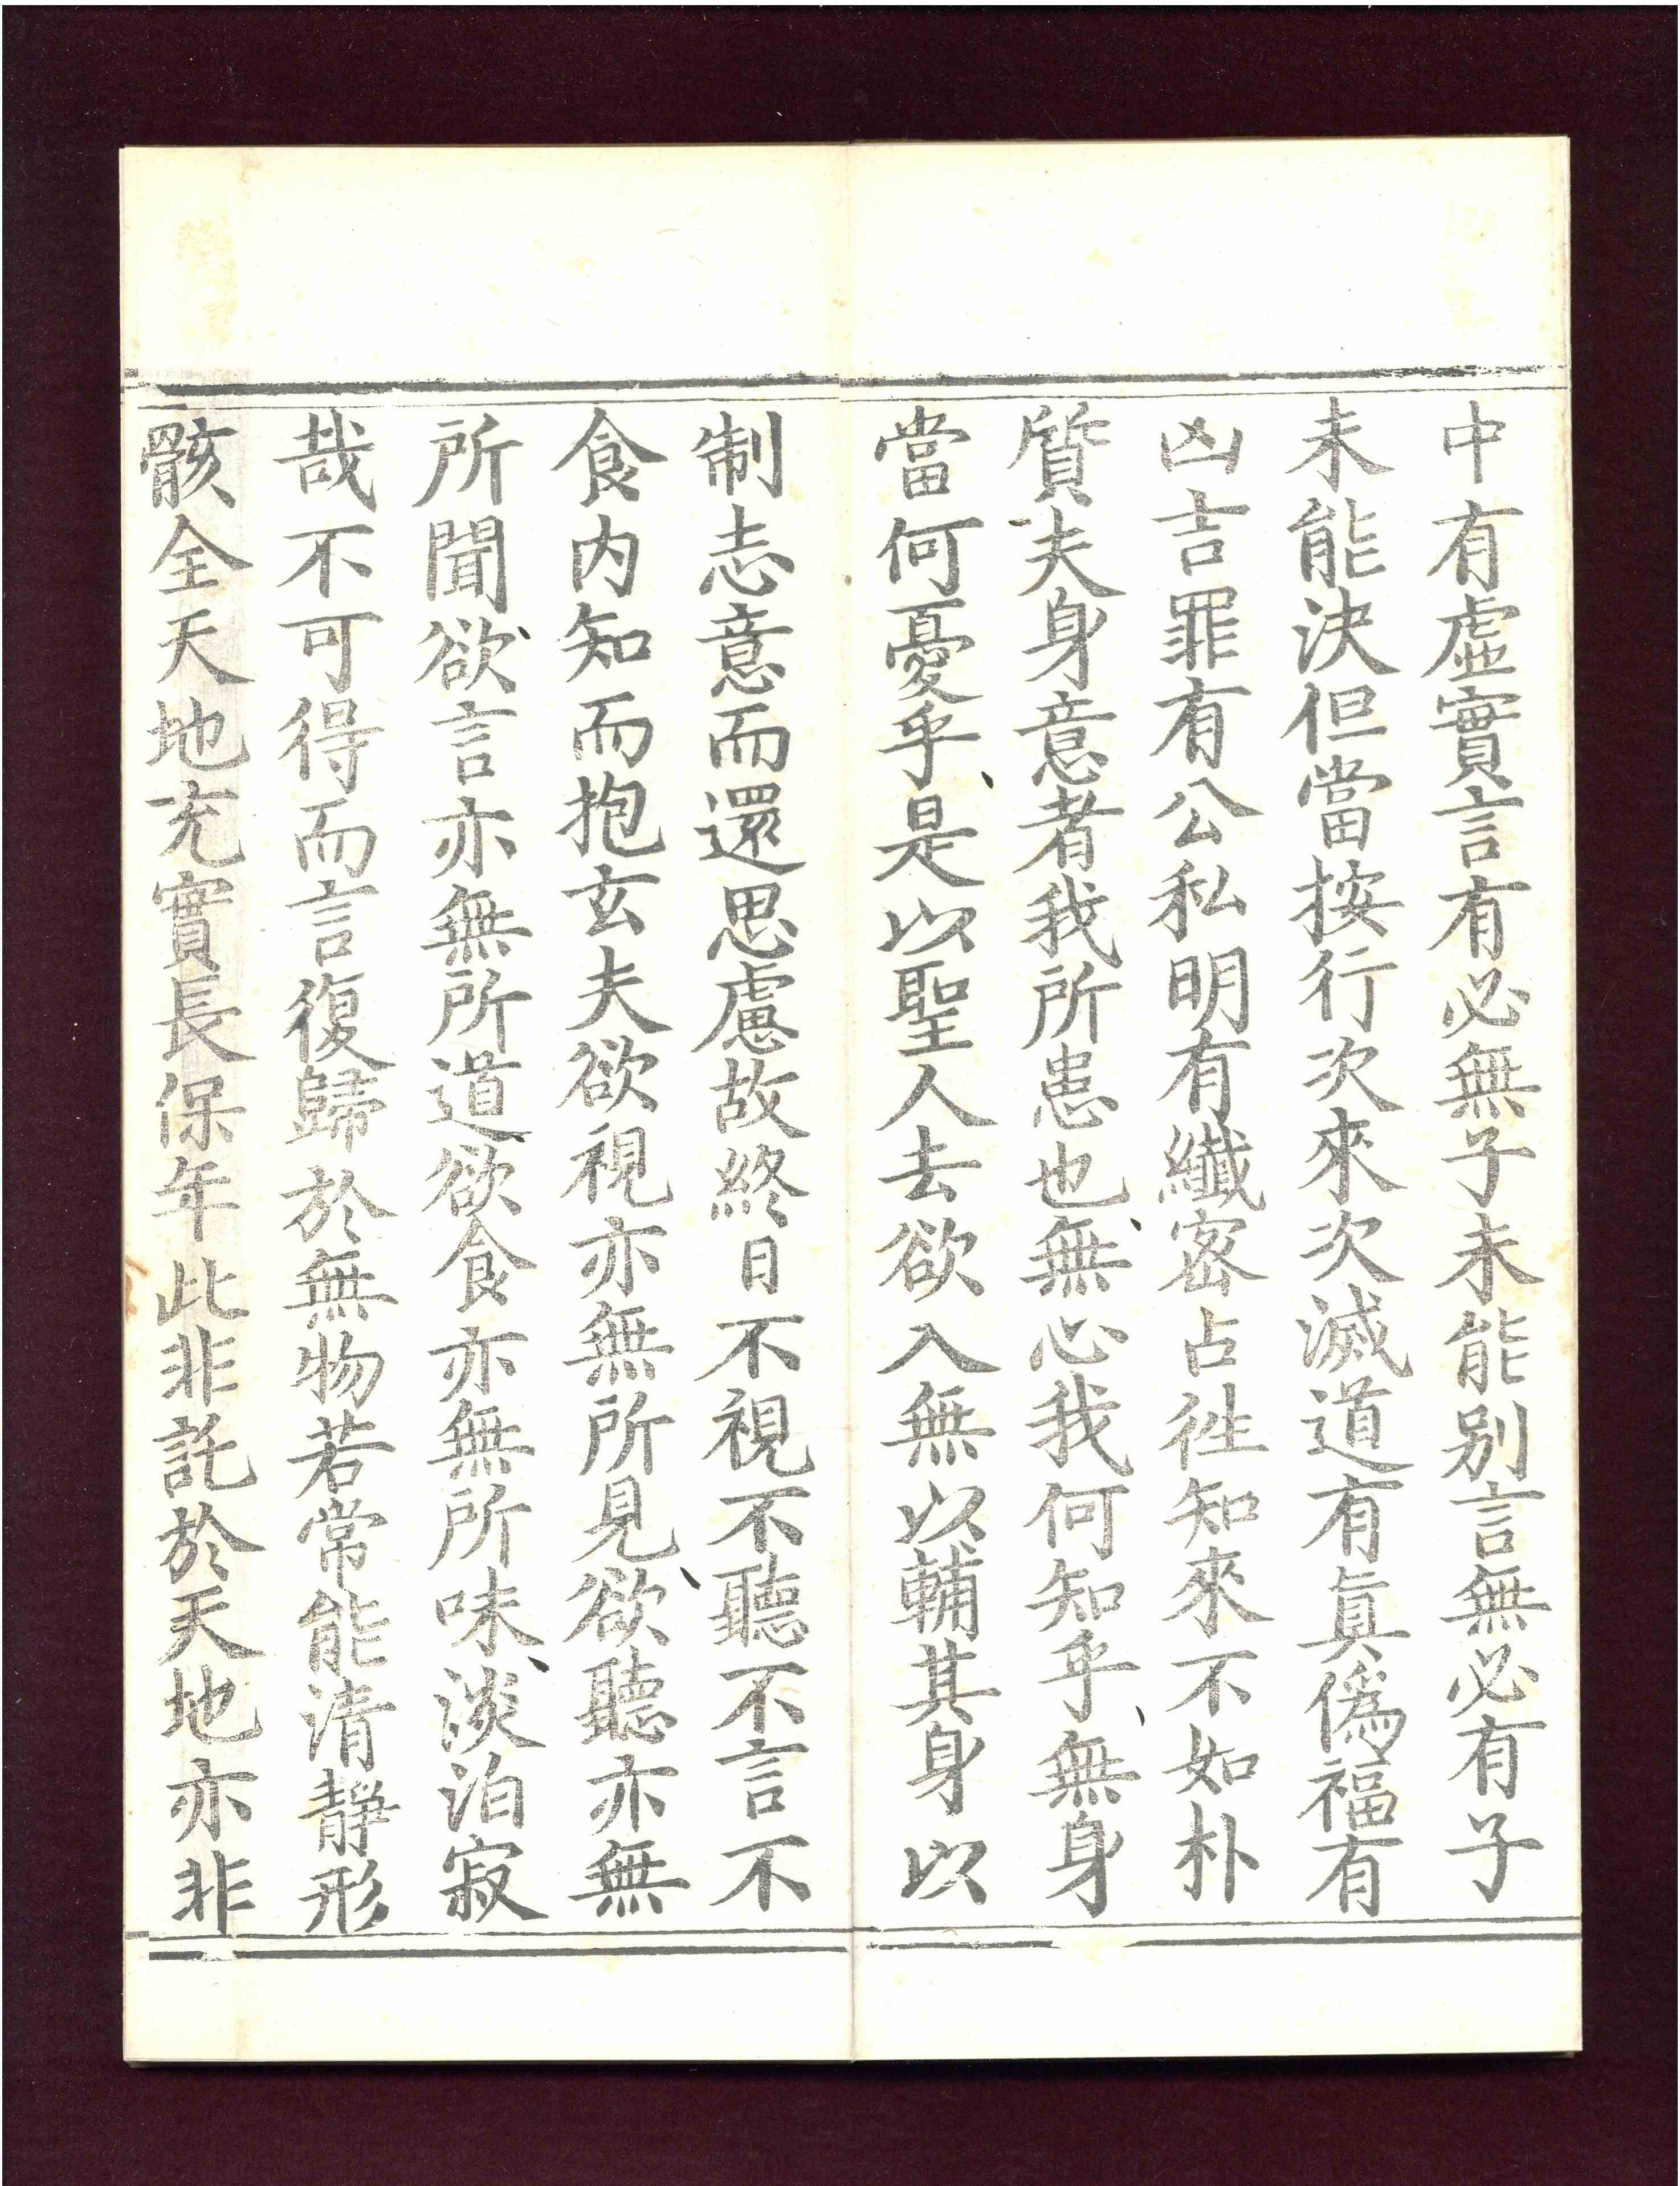 中有虛實言有必無子未能別言無必有子
未能決但當按行次來次滅道有真偽福有
凶吉罪有公私明有纖密占徃知來不如朴
質夫身意者我所患也無心我何知乎無身
當何憂乎是以聖人去欲入無以輔其身以
制志意而還思慮故終日不視不聽不言不
食内知而抱玄夫欲視亦無所見欲聽亦無
所聞欲言亦無所道欲食亦無所味淡泊寂
哉不可得而言復歸於無物若常能清靜形
骸全天地充實長保年此非託於天地亦非